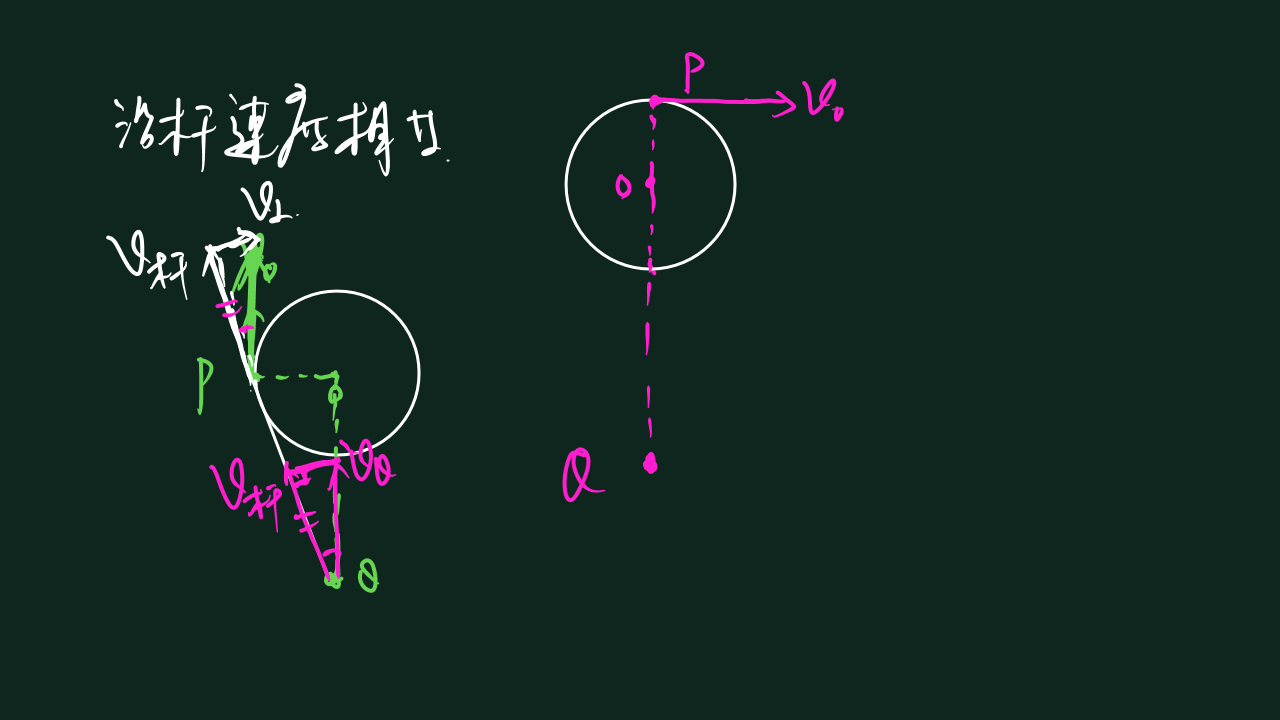 沿杆速度相等.
V⊥.
V杆
V₀
P
V杆
V_Q
O
Q
P
V₀
O
Q